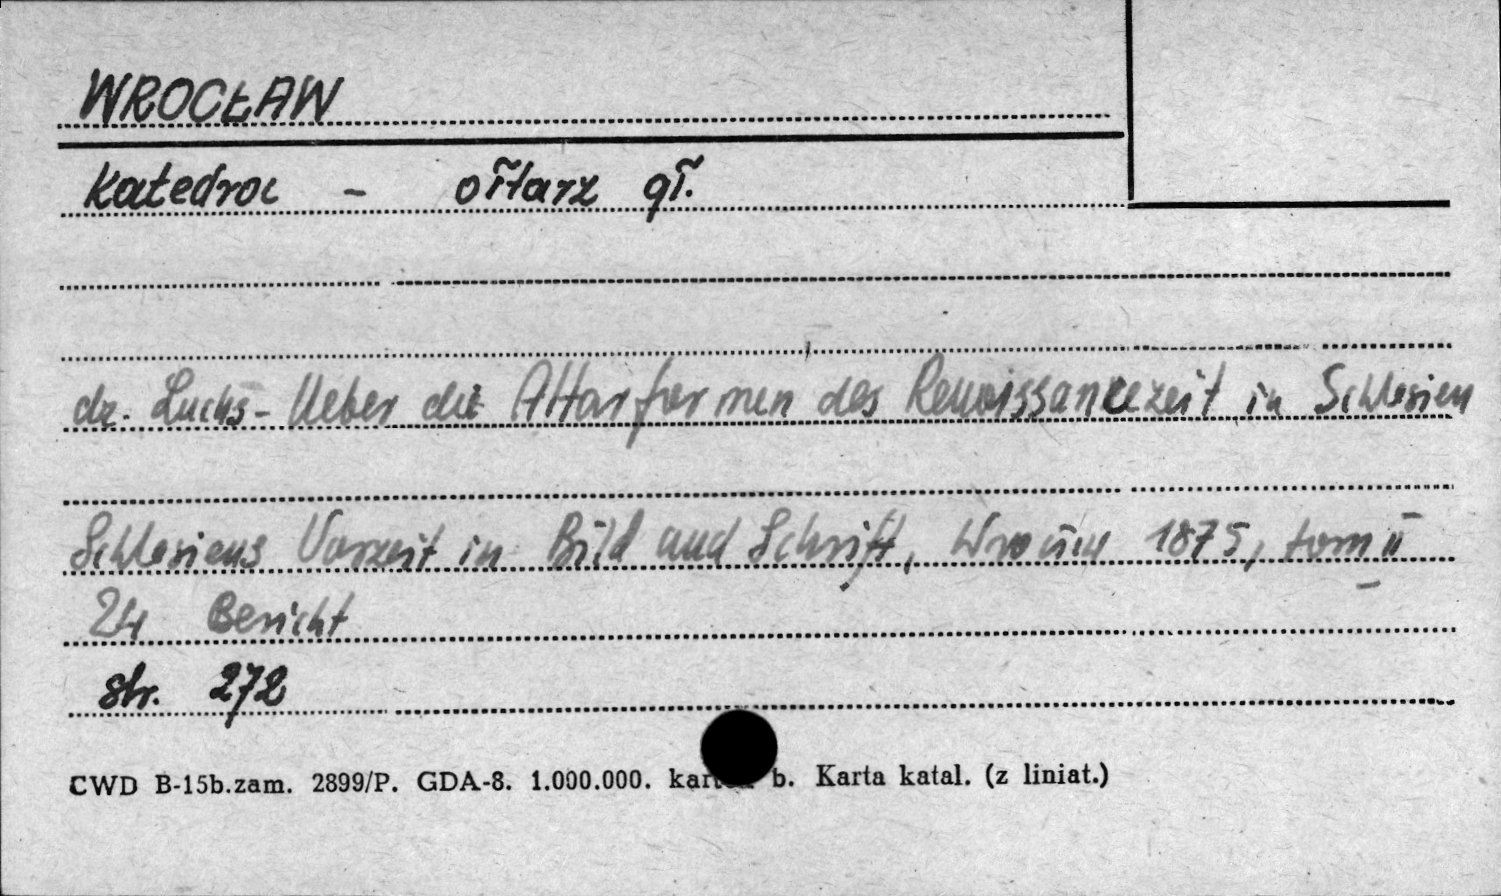 WROCŁAW
Katedra - ołtarz gł.
dr. Luchs - Ueber die Altarformen des Renaissancezeit in Schlesien
Schlesiens Vorzeit in Bild und Schrift, Wrocław 1875, tom II
24 Bericht
str. 272
CWD B-15b.zam. 2899/P. GDA-8. 1.000.000. b. Karta katal. (z liniat.)